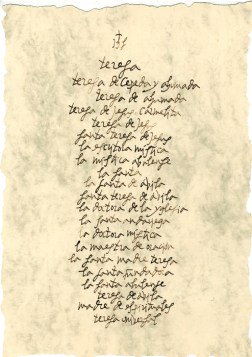 teresa
teresa de cepeda y ahumada
teresa de ahumada
teresa de jesus carmelita
teresa de jesus
santa teresa de jesus
la escritora mistica
la mistica abulense
la santa
la santa de avila
santa teresa de avila
la doctora de la yglesia
la santa andariega
la doctora mistica
la maestra de oracion
la santa madre teresa
la santa
la santa abulense
teresa de avila
madre de espirituales
teresa